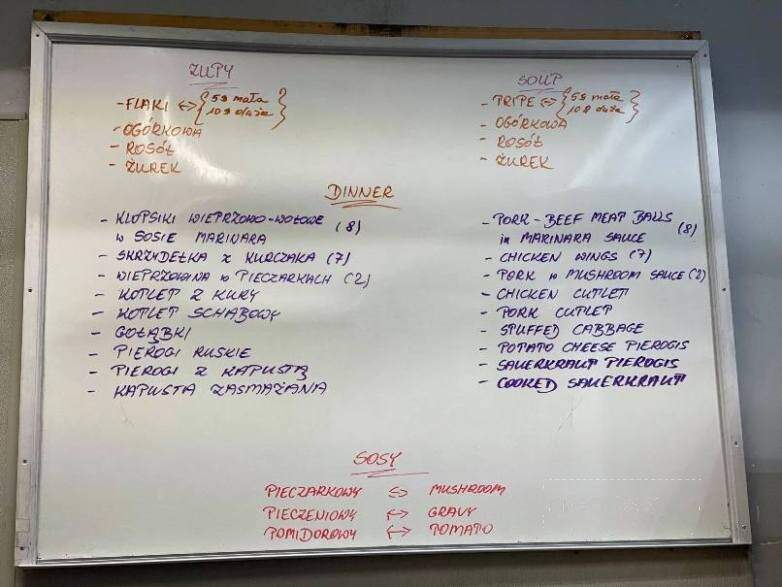 ZUPY
- FLAKI <-> { 5$ mała
10$ duża }
- OGÓRKOWA
- ROSÓŁ
- ŻUREK
SOUP
- TRIPE <-> { 5$ mała
10$ duża }
- OGÓRKOWA
- ROSÓŁ
- ŻUREK
DINNER
- KLOPSIKI WIEPRZOWO-WOŁOWE (8)
w SOSIE MARINARA
- SKRZYDEŁKA Z KURCZAKA (7)
- WIEPRZOWINA w PIECZARKACH (2)
- KOTLET Z KURY
- KOTLET SCHABOWY
- GOŁĄBKI
- PIEROGI RUSKIE
- PIEROGI Z KAPUSTĄ
- KAPUSTA ZASMAŻANA
- PORK-BEEF MEAT BALLS (8)
in MARINARA SAUCE
- CHICKEN WINGS (7)
- PORK w MUSHROOM SAUCE (2)
- CHICKEN CUTLET
- PORK CUTLET
- STUFFED CABBAGE
- POTATO CHEESE PIEROGIS
- SAUERKRAUT PIEROGIS
- COOKED SAUERKRAUT
SOSY
PIECZARKOWY <-> MUSHROOM
PIECZENIOWY <-> GRAVY
POMIDOROWY <-> TOMATO